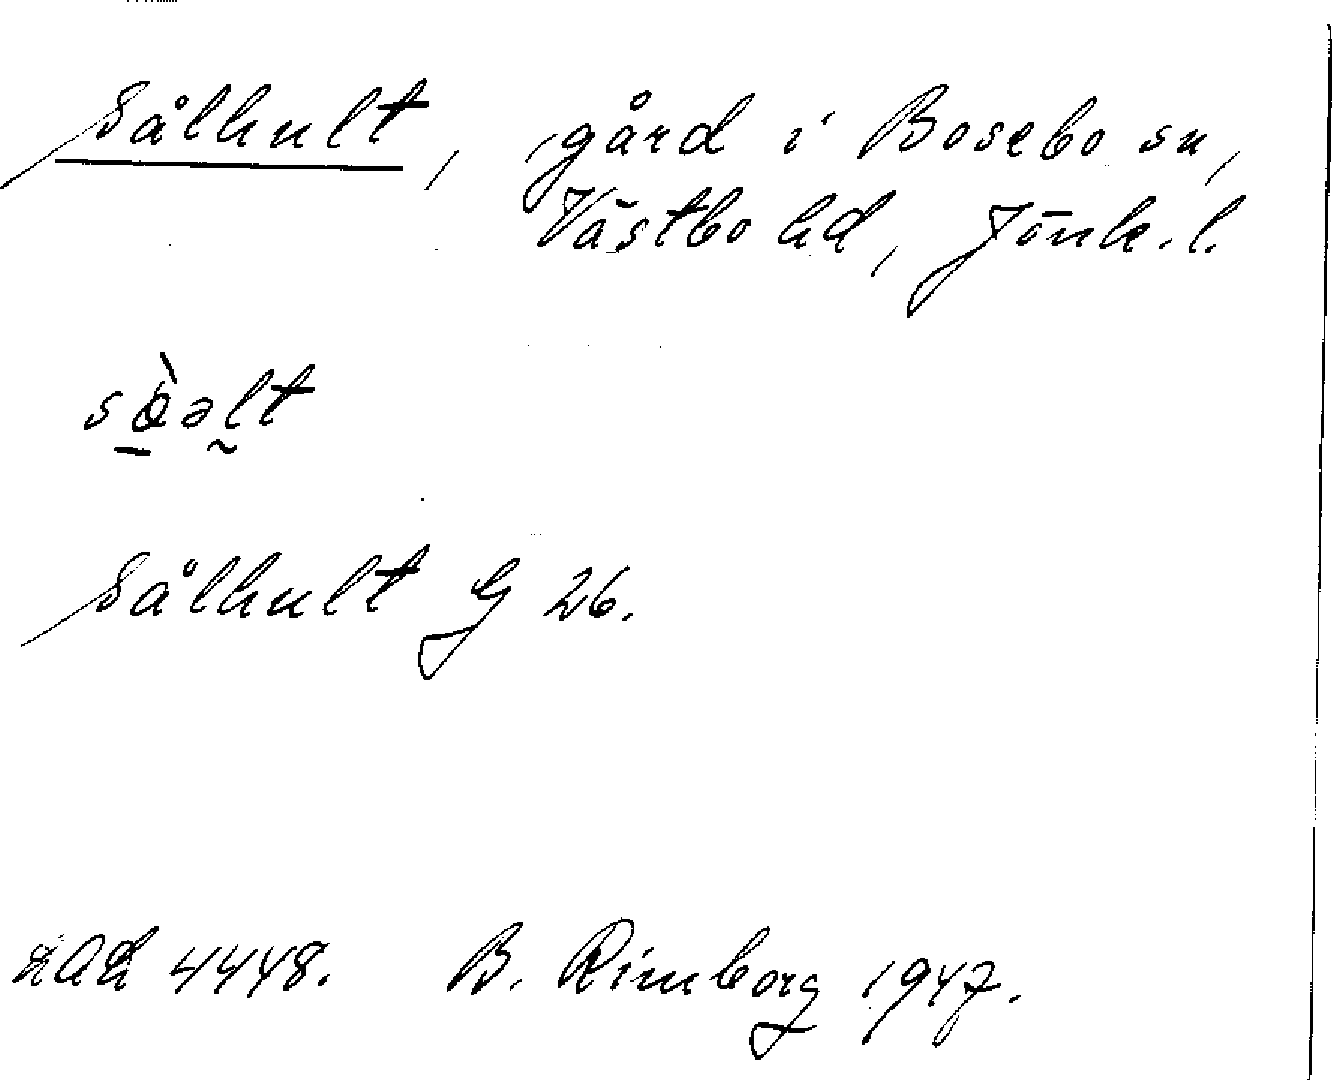 Sålhult, gård i Bosebo sn,
Västbo hd, Jönk. l.
Sålhult G 26.
LAL 4448. B. Rimborg 1947.